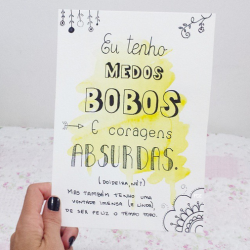 Eu tenho
MEDOS
BOBOS
E coragens
ABSURDAS.
(DOIDEIRA, NÉ?)
MAS TAMBÉM TENHO UMA
VONTADE IMENSA (E LINDA)
DE SER FELIZ O TEMPO TODO.